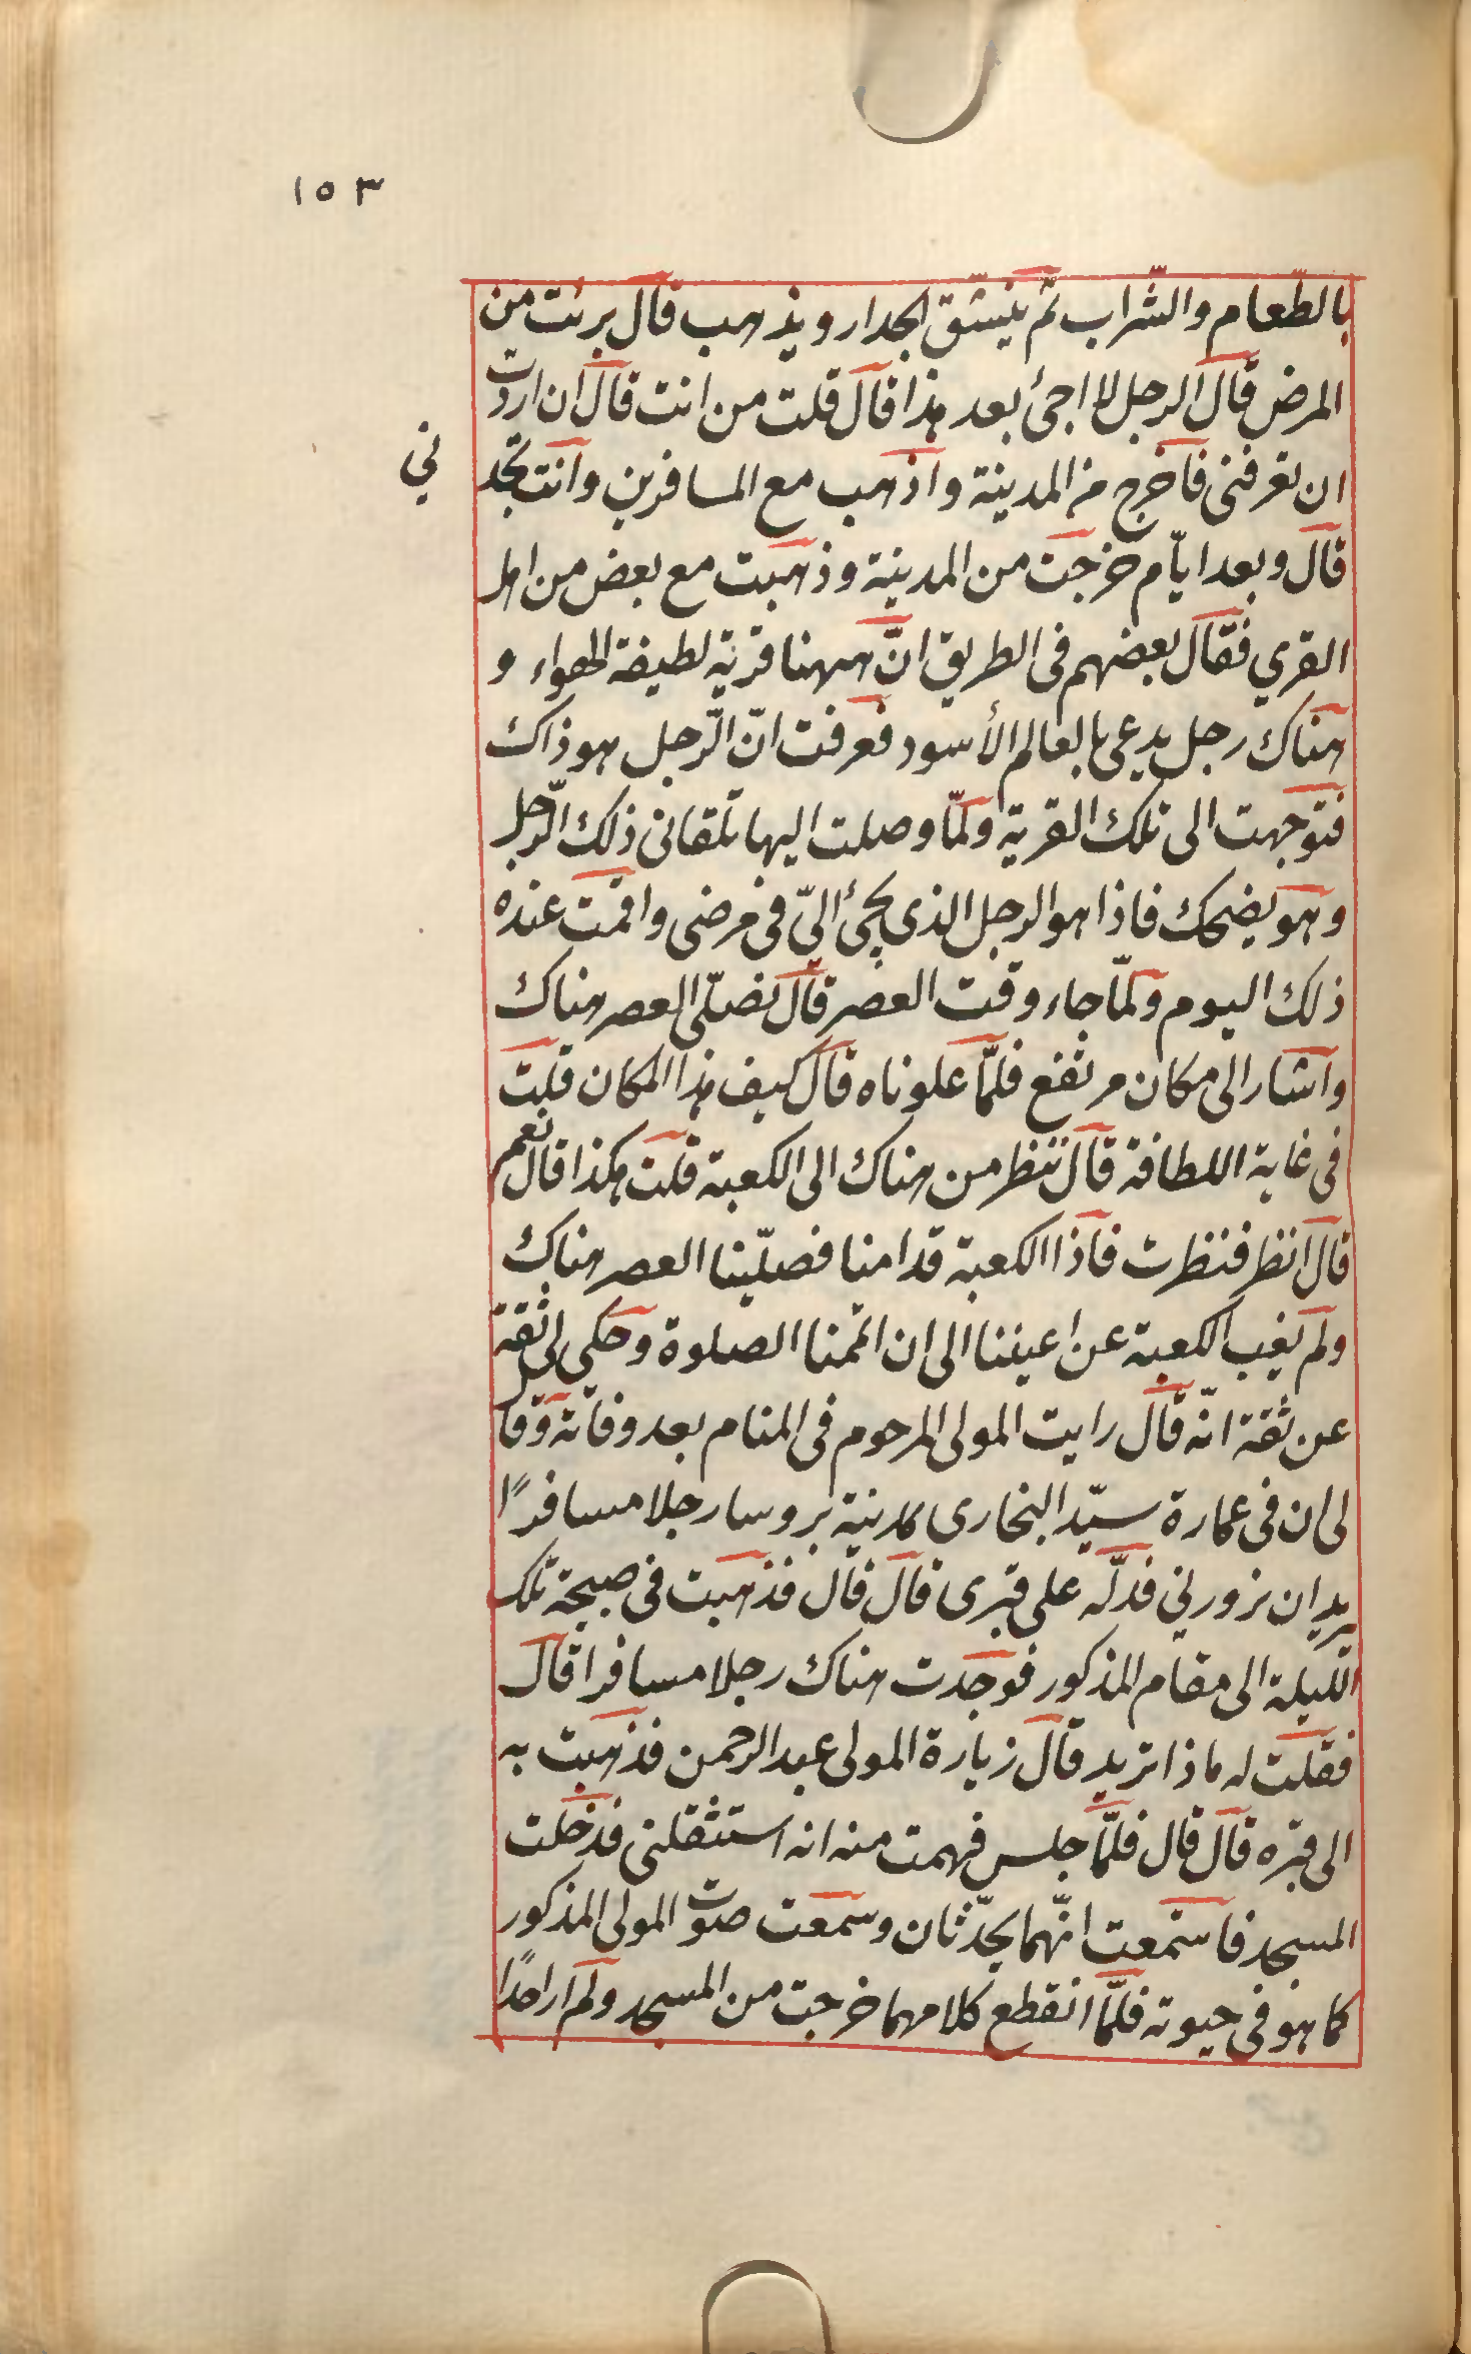 ١٥٣
بالطّعام والشّراب ثمّ ينشّق الجدار ويذهب قال برئت من
المرض قال الرجل لا اجئ بعد هذا قال قلت من انت قال ان اردت
ان تعرفنى فاخرج من المدينة واذهب مع المسافرين وانت تجد
ني
قال وبعد ايّام خرجت من المدينة وذهبت مع بعض من اهل
القرى فقال بعضهم فى الطريق انّ ههنا قرية لطيفة الهواء و
هناك رجل يدعى بالعالم الأسود فعرفت انّ الّرجل هو ذاك
فتوجهت الى تلك القرية ولمّا وصلت اليها تلقانى ذلك الّرجل
وهو يضحك فاذا هو الرجل الذى يجئ اليّ فى مرضى واقمت عنده
ذلك اليوم ولمّا جاء وقت العصر قال نصلّى العصر هناك
واشار الى مكان مرتفع فلمّا علوناه قال كيف هذا المكان قلت
فى غاية اللطافة قال ننظر من هناك الى الكعبة قلت هكذا قال نعم
قال انظر فنظرت فاذا الكعبة قدامنا فصلّينا العصر هناك
ولم يغب الكعبة عن اعيننا الى ان اتممنا الصلوة وحكى لى ثقة
عن ثقة انّه قال رايت المولى المرحوم فى المنام بعد وفاته وقال
لى ان فى عمارة سيّد البخارى بمدينة بروسا رجلا مسافرًا
يريد ان يزورني فدلّه على قبرى قال قال فذهبت فى صبيحة تلك
الليلة الى مقام المذكور فوجدت هناك رجلا مسافرا قال
فقلت له ماذا تريد قال زيارة المولى عبد الرحمن فذهبت به
الى قبره قال قال فلمّا جلس فهمت منه انه استثقلنى فدخلت
المسجد فاستمعت انّهما يحدّثان وسمعت صوت المولى المذكور
كما هو فى حيوته فلمّا انقطع كلامهما خرجت من المسجد ولم ار احدًا